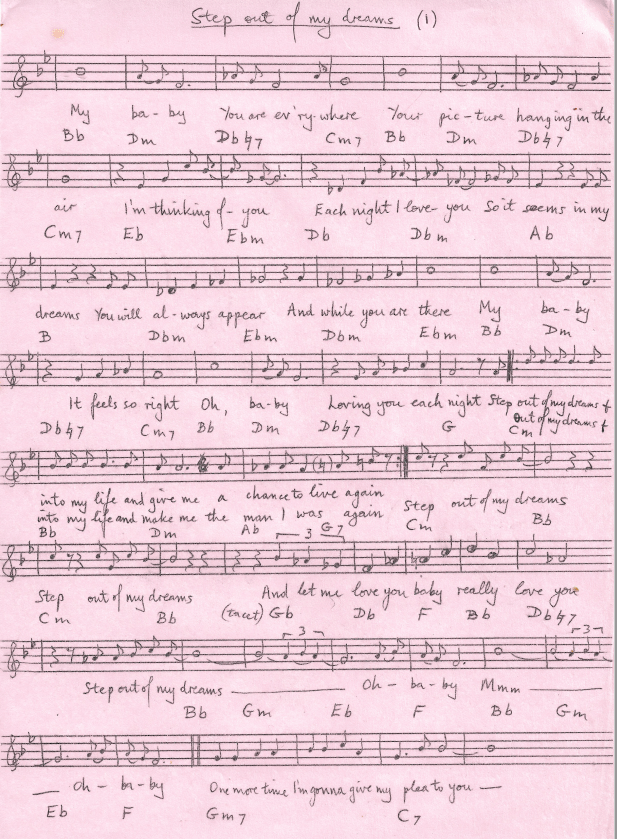 Step out of my dreams (1)
My ba-by You are ev'ry-where Your pic-ture hanging in the
Bb Dm Db♮7 Cm7 Bb Dm Db♮7
air I'm thinking of- you Each night I love- you So it seems in my
Cm7 Eb Ebm Db Dbm Ab
dreams You will al-ways appear And while you are there My ba-by
B Dbm Ebm Dbm Ebm Bb Dm
It feels so right Oh, ba-by Loving you each night Step out of my dreams +
out of my dreams +
Db♮7 Cm7 Bb Dm Db♮7 G Cm
into my life and give me a chance to live again
into my life and make me the man I was again Step out of my dreams
Bb Dm Ab 3 G7 Cm Bb
Step out of my dreams And let me love you baby really love you
Cm Bb (tacet) Gb Db F Bb Db♮7
3 3
Step out of my dreams Oh - ba-by Mmm
Bb Gm Eb F Bb Gm
Oh - ba-by One more time I'm gonna give my plea to you
Eb F Gm7 C7